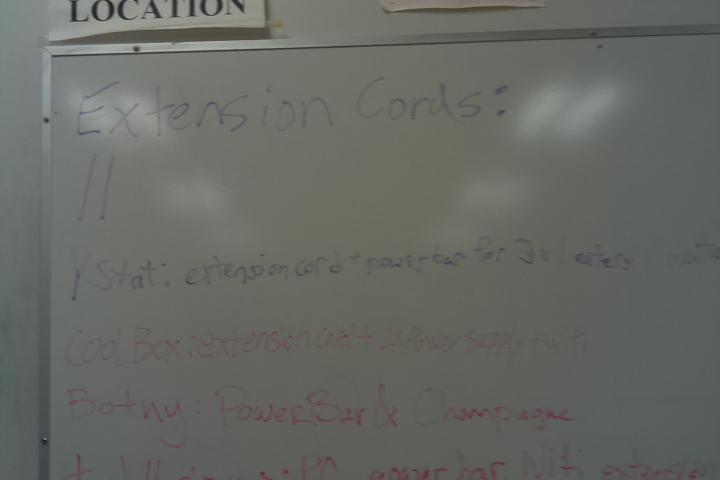 LOCATION
Extension Cords:
||
YStat: extension cord + power bar for 3x heaters +
Cool Box: extension cord + 2x Power supply + wifi
Botny: PowerBar & Champagne
: PC power bar Wifi extension